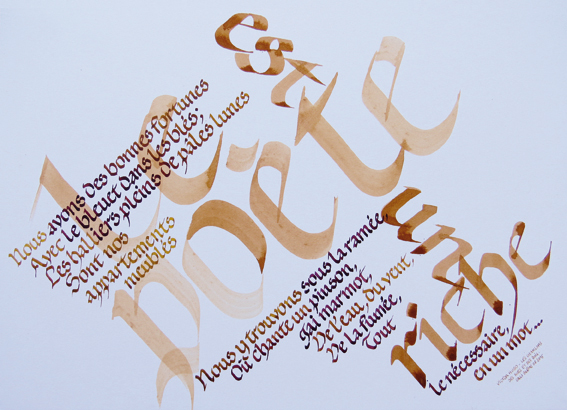 Le
poète
est
un
riche
Nous avons des bonnes fortunes
Avec le bleuet dans les blés;
Les halliers pleins de pâles lunes
Sont nos
appartements
meublés
Nous y trouvons sous la ramée,
Où chante un pinson,
J'ai marmot,
De l'eau, du vent,
De la fumée,
Tout
le nécessaire,
en un mot...